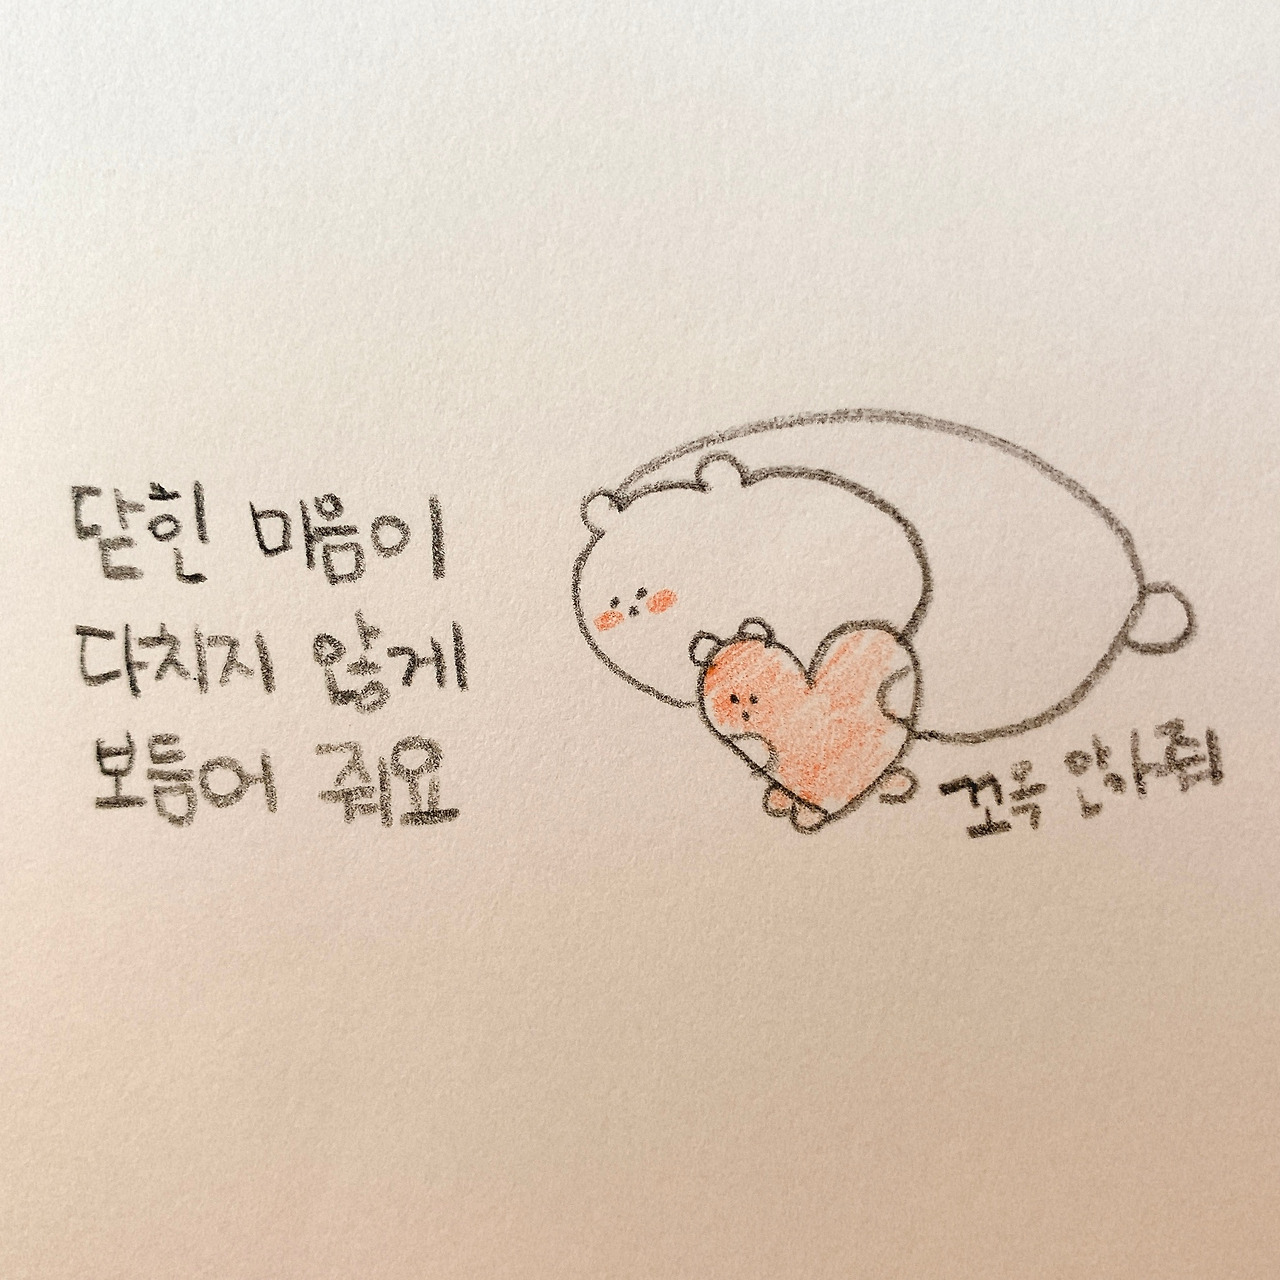 닫힌 마음이
다치지 않게
보듬어 줘요
꼬옥 안아줘